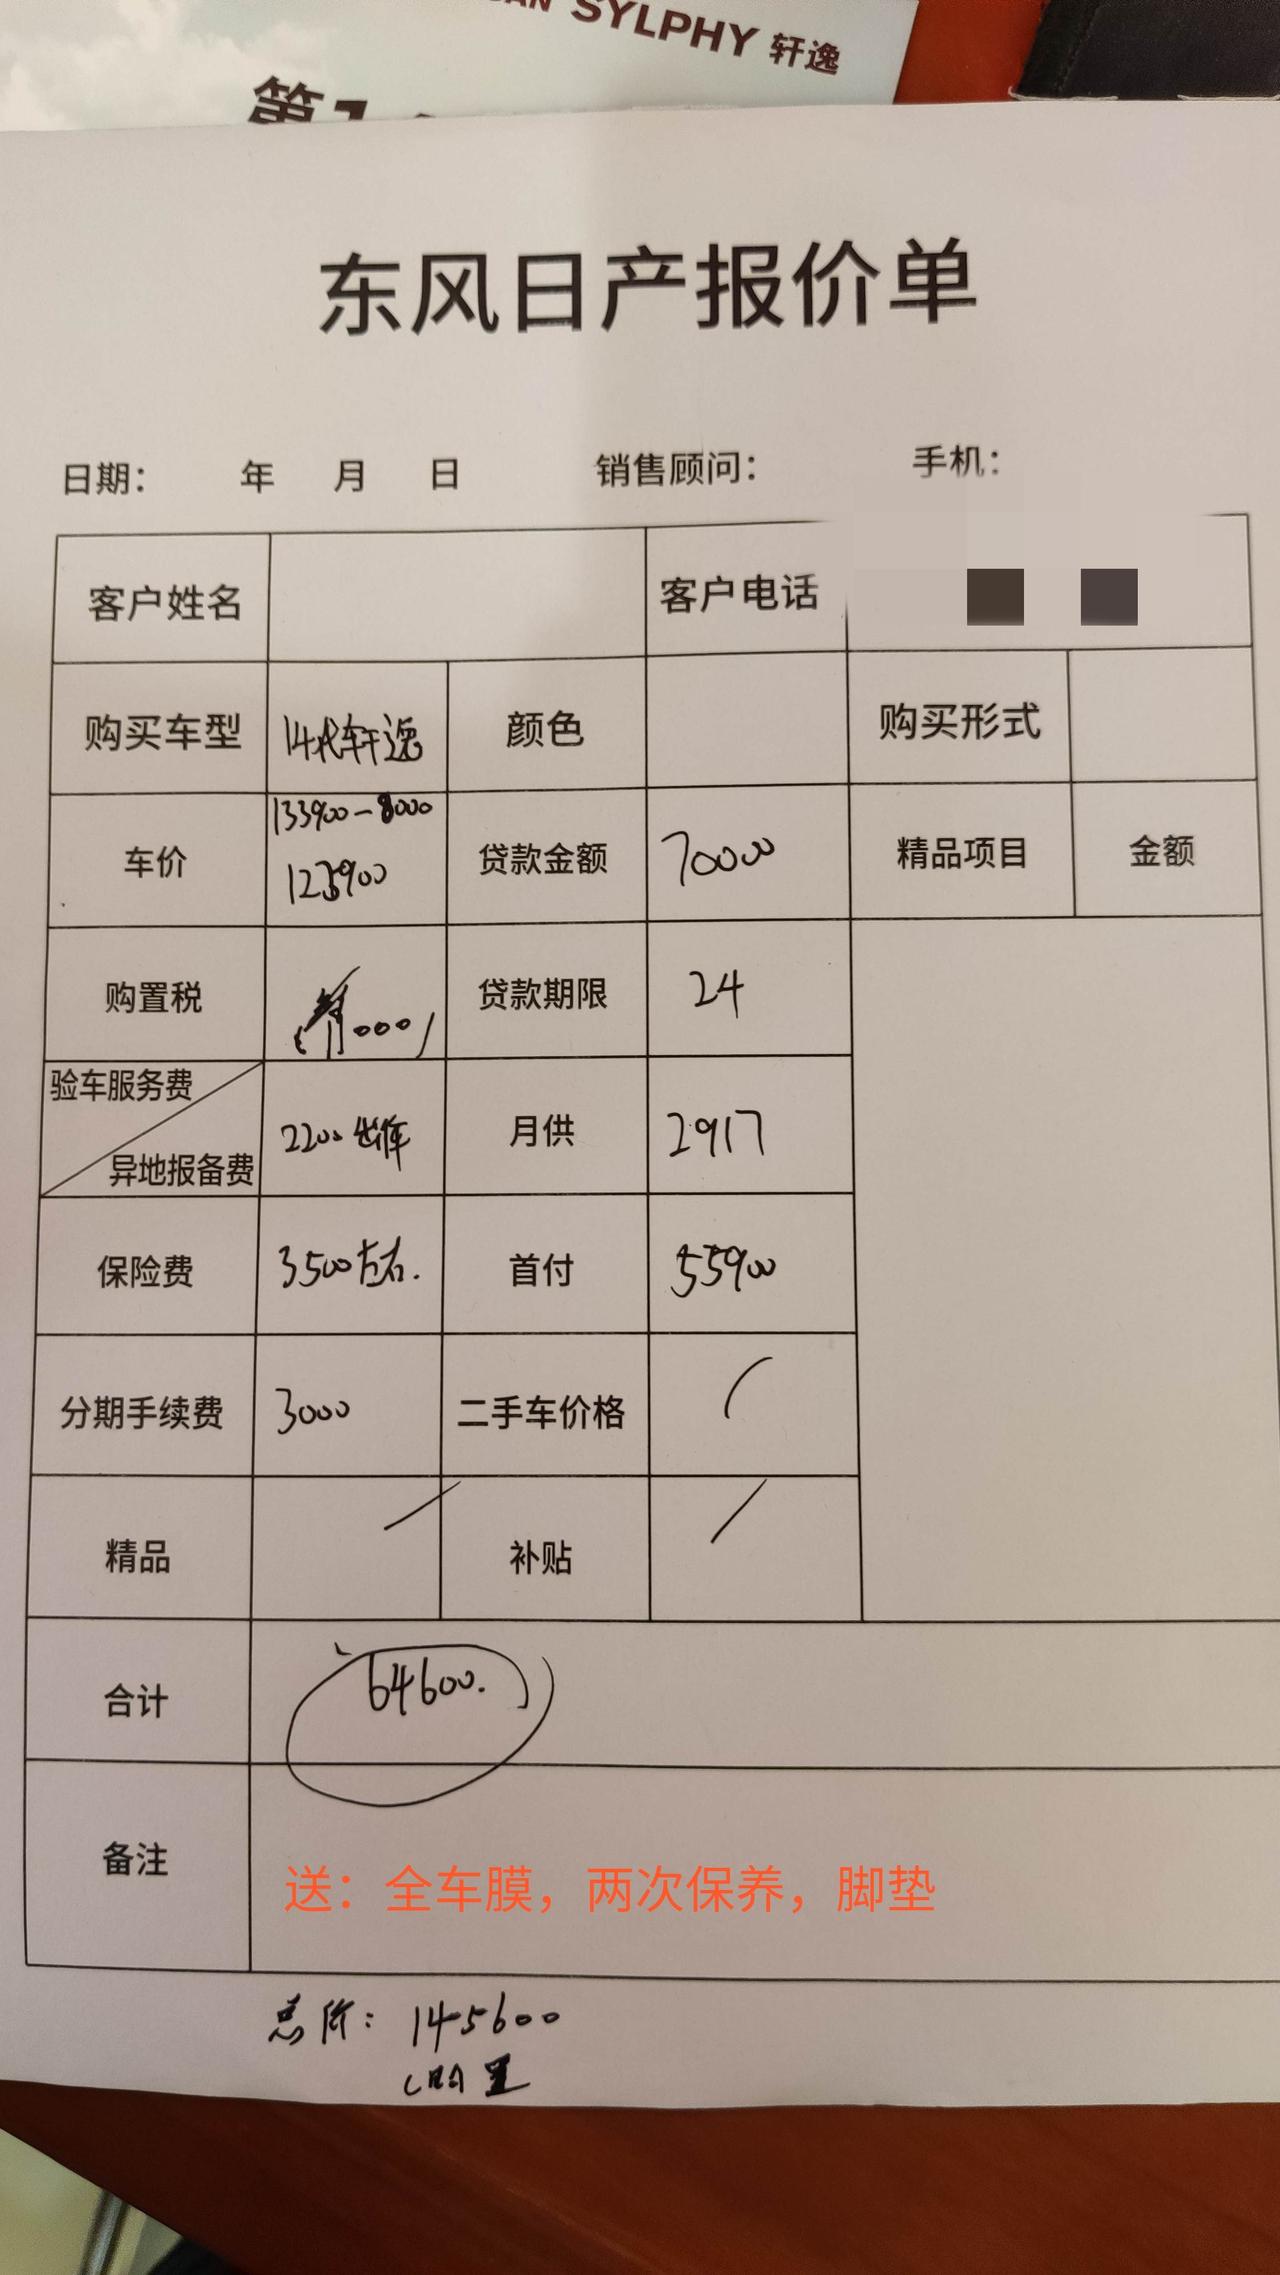 SYLPHY 轩逸
第1
东风日产报价单
日期： 年 月 日 销售顾问： 手机：
客户姓名 客户电话
购买车型 14代轩逸 颜色 购买形式
133900-8000
车价 125900 贷款金额 70000 精品项目 金额
购置税 000 贷款期限 24
验车服务费
异地报备费 2200 出库 月供 2917
保险费 3500左右. 首付 55900
分期手续费 3000 二手车价格
精品 补贴
合计 64600.
备注
送：全车膜，两次保养，脚垫
总价：145600
购置